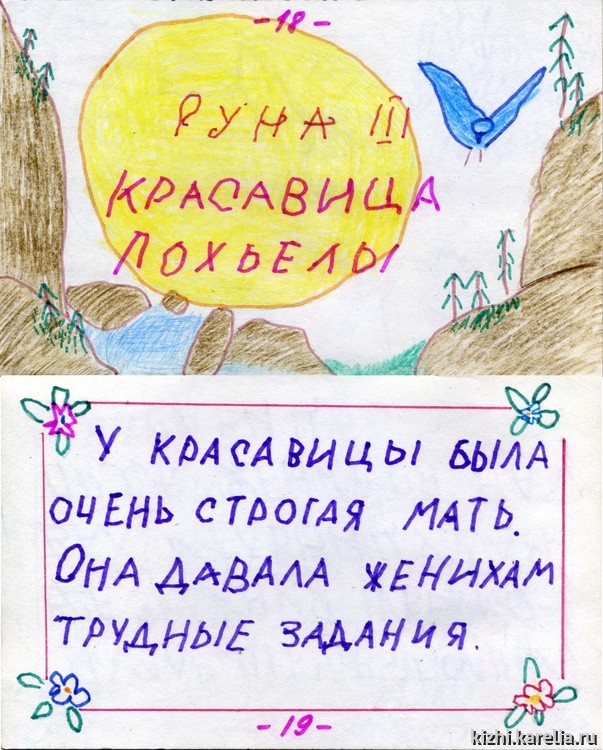 -18-
РУНА III
КРАСАВИЦА
ПОХЬЕЛЫ
У КРАСАВИЦЫ БЫЛА
ОЧЕНЬ СТРОГАЯ МАТЬ.
ОНА ДАВАЛА ЖЕНИХАМ
ТРУДНЫЕ ЗАДАНИЯ.
-19-
kizhi.karelia.ru